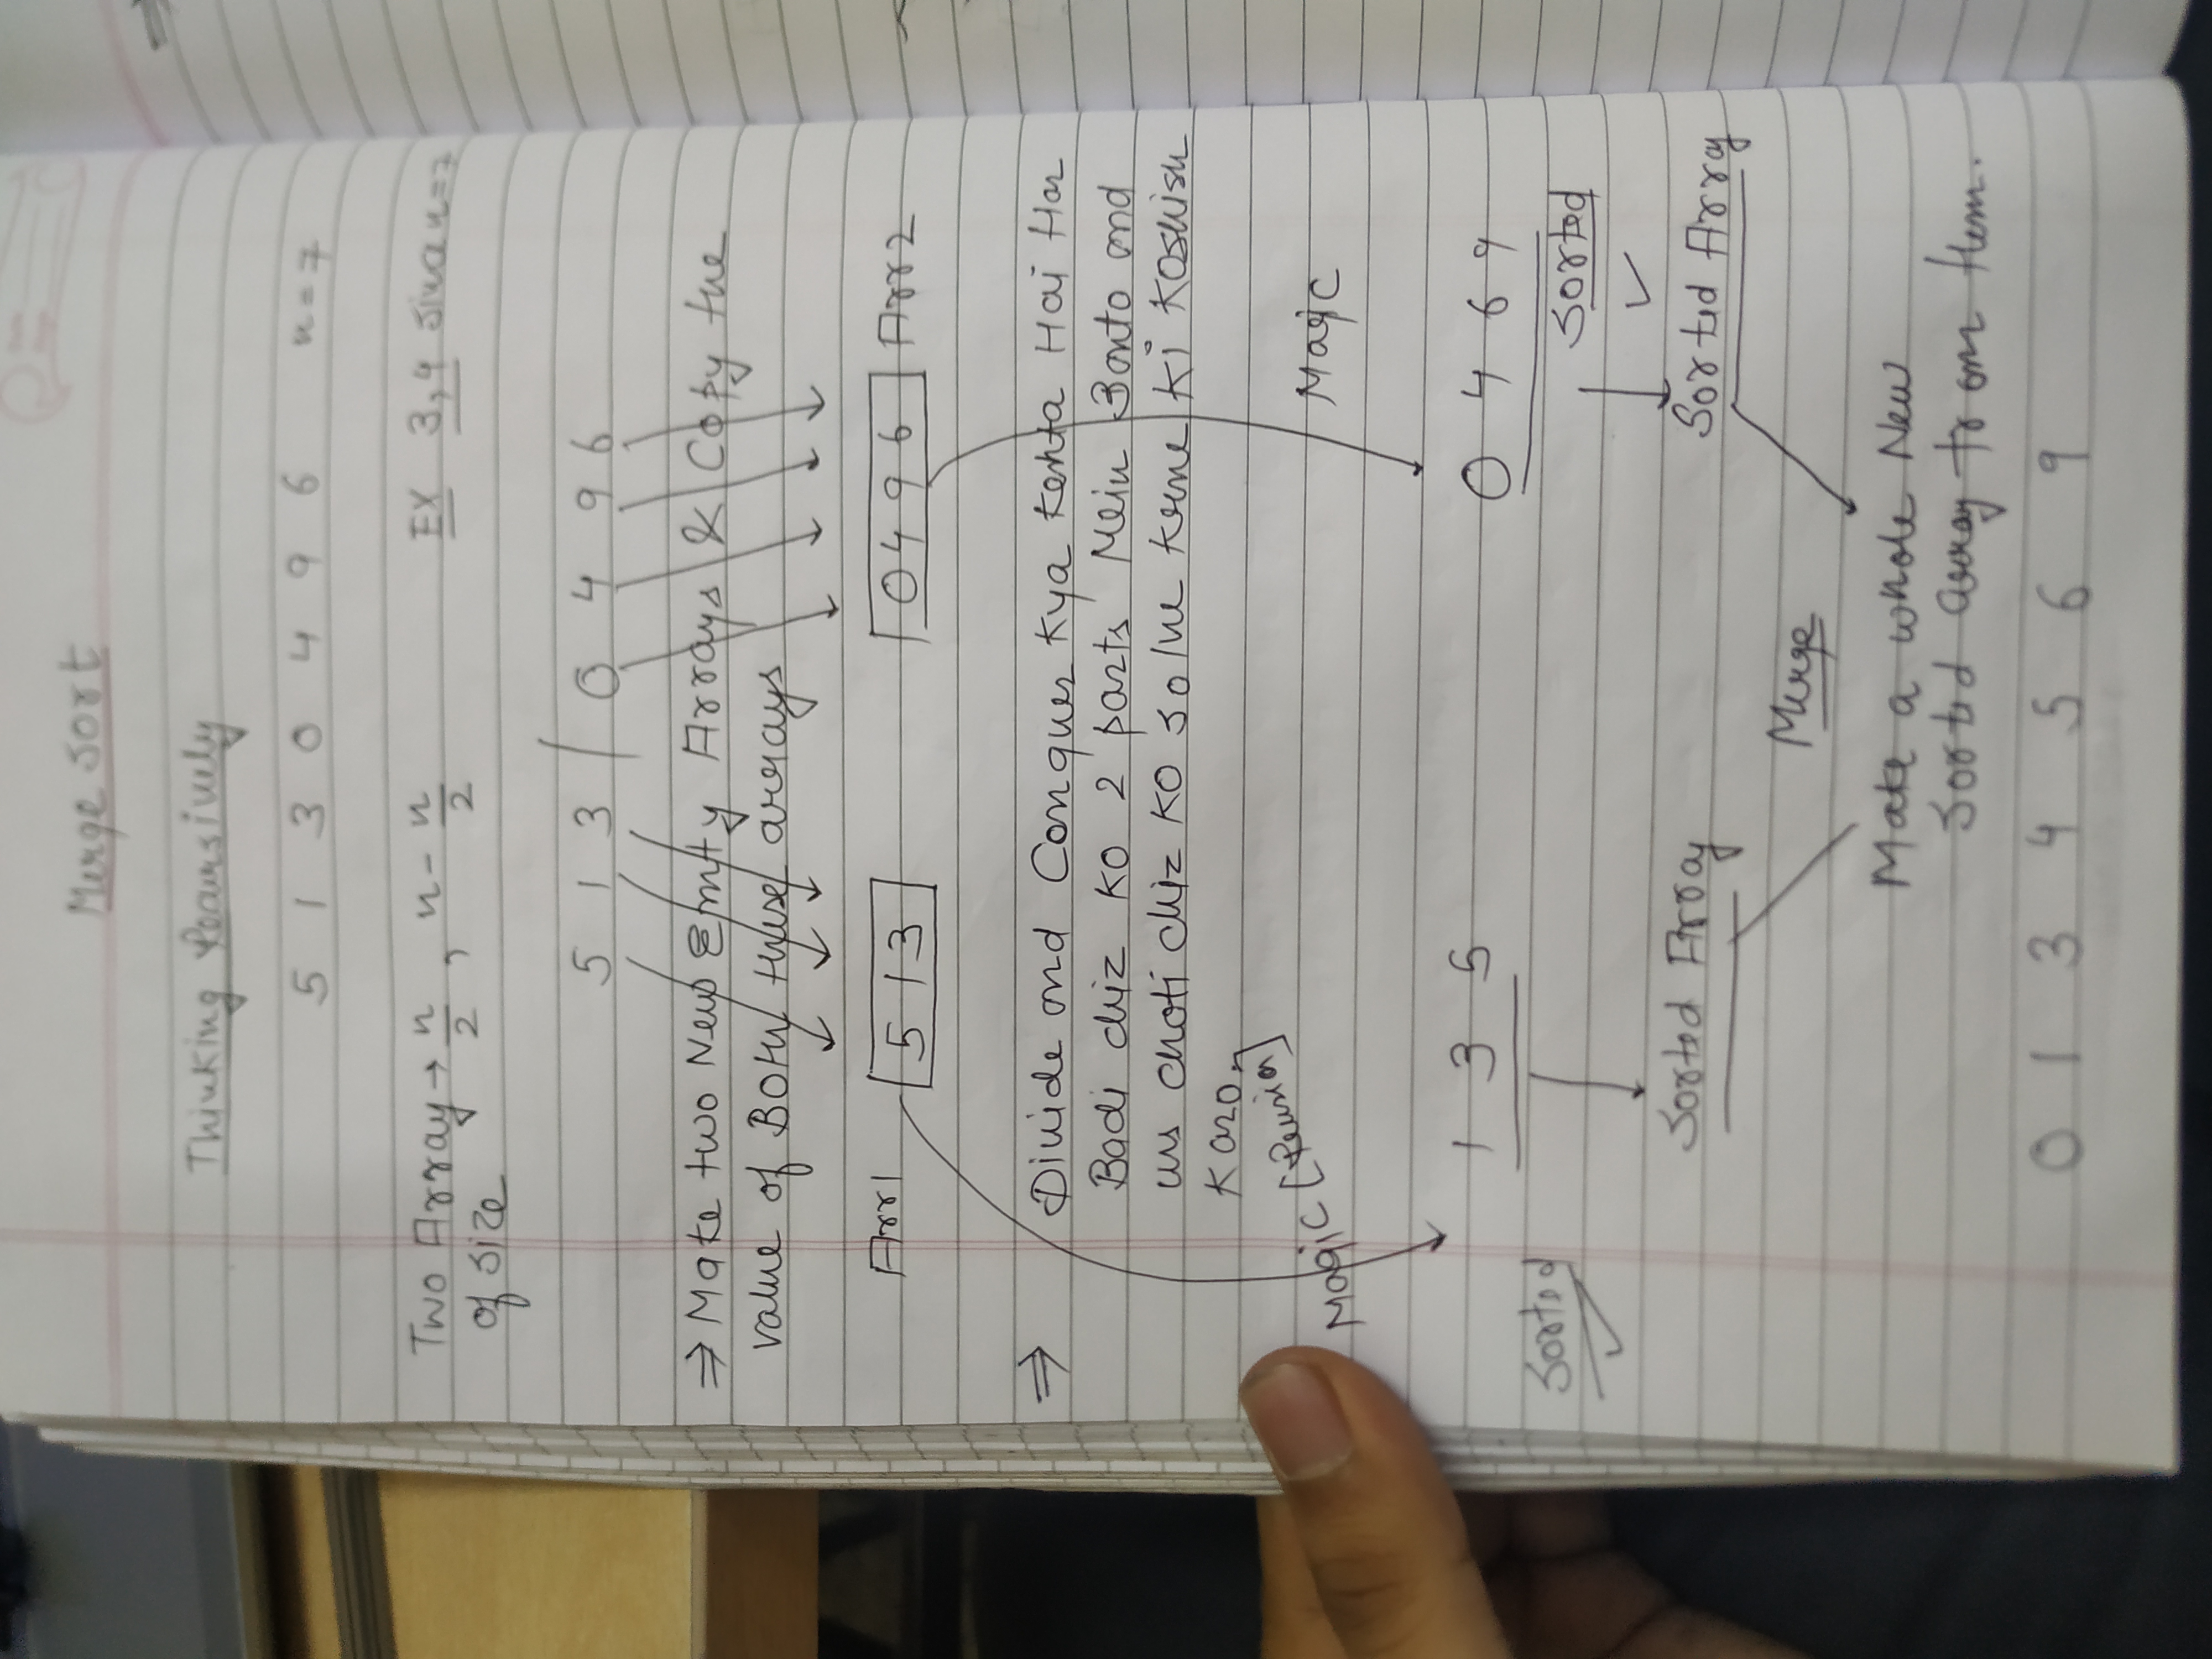 Merge Sort
Thinking Recursively
5 1 3 0 4 9 6 n = 7
Two Array → n/2 , n - n/2 EX 3,4 Since n=7
of size
5 1 3 / 0 4 9 6
⇒ Make two New Empty Arrays & Copy the
value of Both these arrays
Arr1 5 1 3 0 4 9 6 Arr2
⇒ Divide and Conquer Kya Kehta Hai Har
Badi chiz KO 2 parts Mein Banto and
us choti chiz KO solve Krne Ki Koshish
Karo.
Magic Magic
1 3 5 0 4 6 9
Sorted Sorted
Sorted Array Sorted Array
Merge
Make a whole New
Sorted array from them.
0 1 3 4 5 6 9